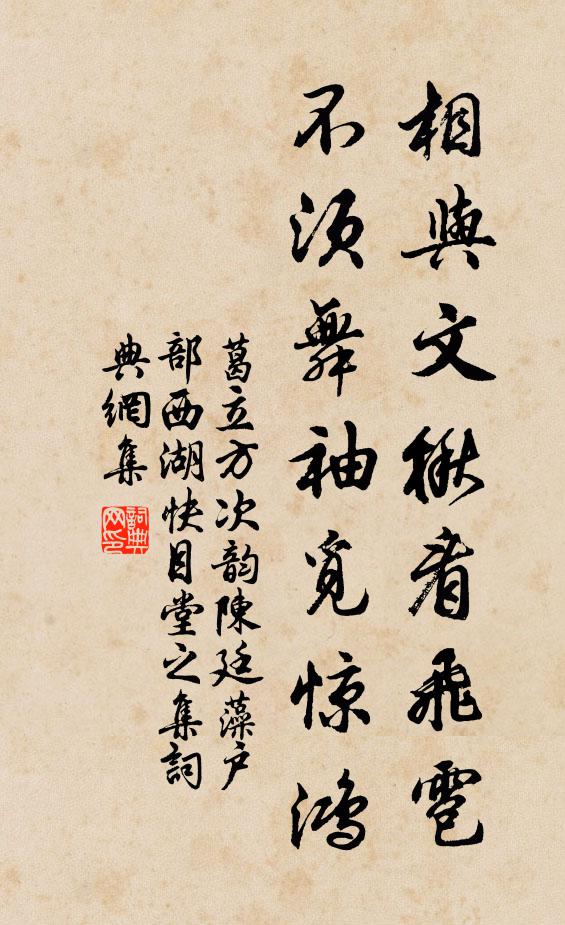 相與文楸看飛雹
不須舞袖覓惊鴻
葛立方次韵陳廷藻户
部西湖快目堂之集詞
典網集
詞典
网印